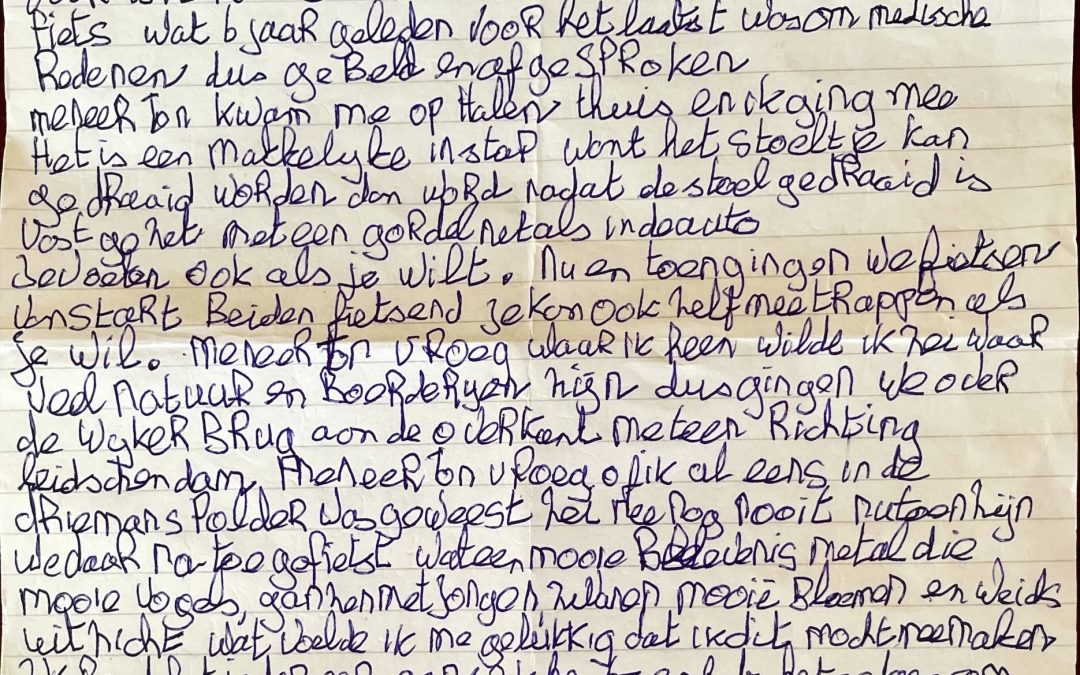 fiets wat 6 jaar geleden voor het laatst was om medische
Redenen dus geBeld en afgeSPRoken
meneeR Ton kwam me op Halen thuis en ik ging mee
Het is een makkelyke instap want het stoeltje kan
gedRaaid woRden dan word nadat de stoel gedRaaid is
vast gezet met een gordel net als in de auto
Je voeten ook als je wilt. Nu en toen gingen we fietsen
van staRt Beiden fietsend je kan ook zelf meetRappen als
je wil. meneeR Ton vRoeg waar ik heen wilde ik zei waar
veel natuuR en BoeRdeRyen zijn dus gingen we oveR
de WykeR BRug aan de overkant meteen Richting
Leidschendam. MeneeR Ton vRoeg of ik al eens in de
dRiemans PoldeR was geweest zei nee nog nooit nu toen zijn
we daaR na toe gefietst wat een mooie Belevenis met al die
mooie vogels, ganzen met jongen zwanen mooie Bloemen en weids
uitzicht wat voelde ik me gelukkig dat ik dit mocht meemaken